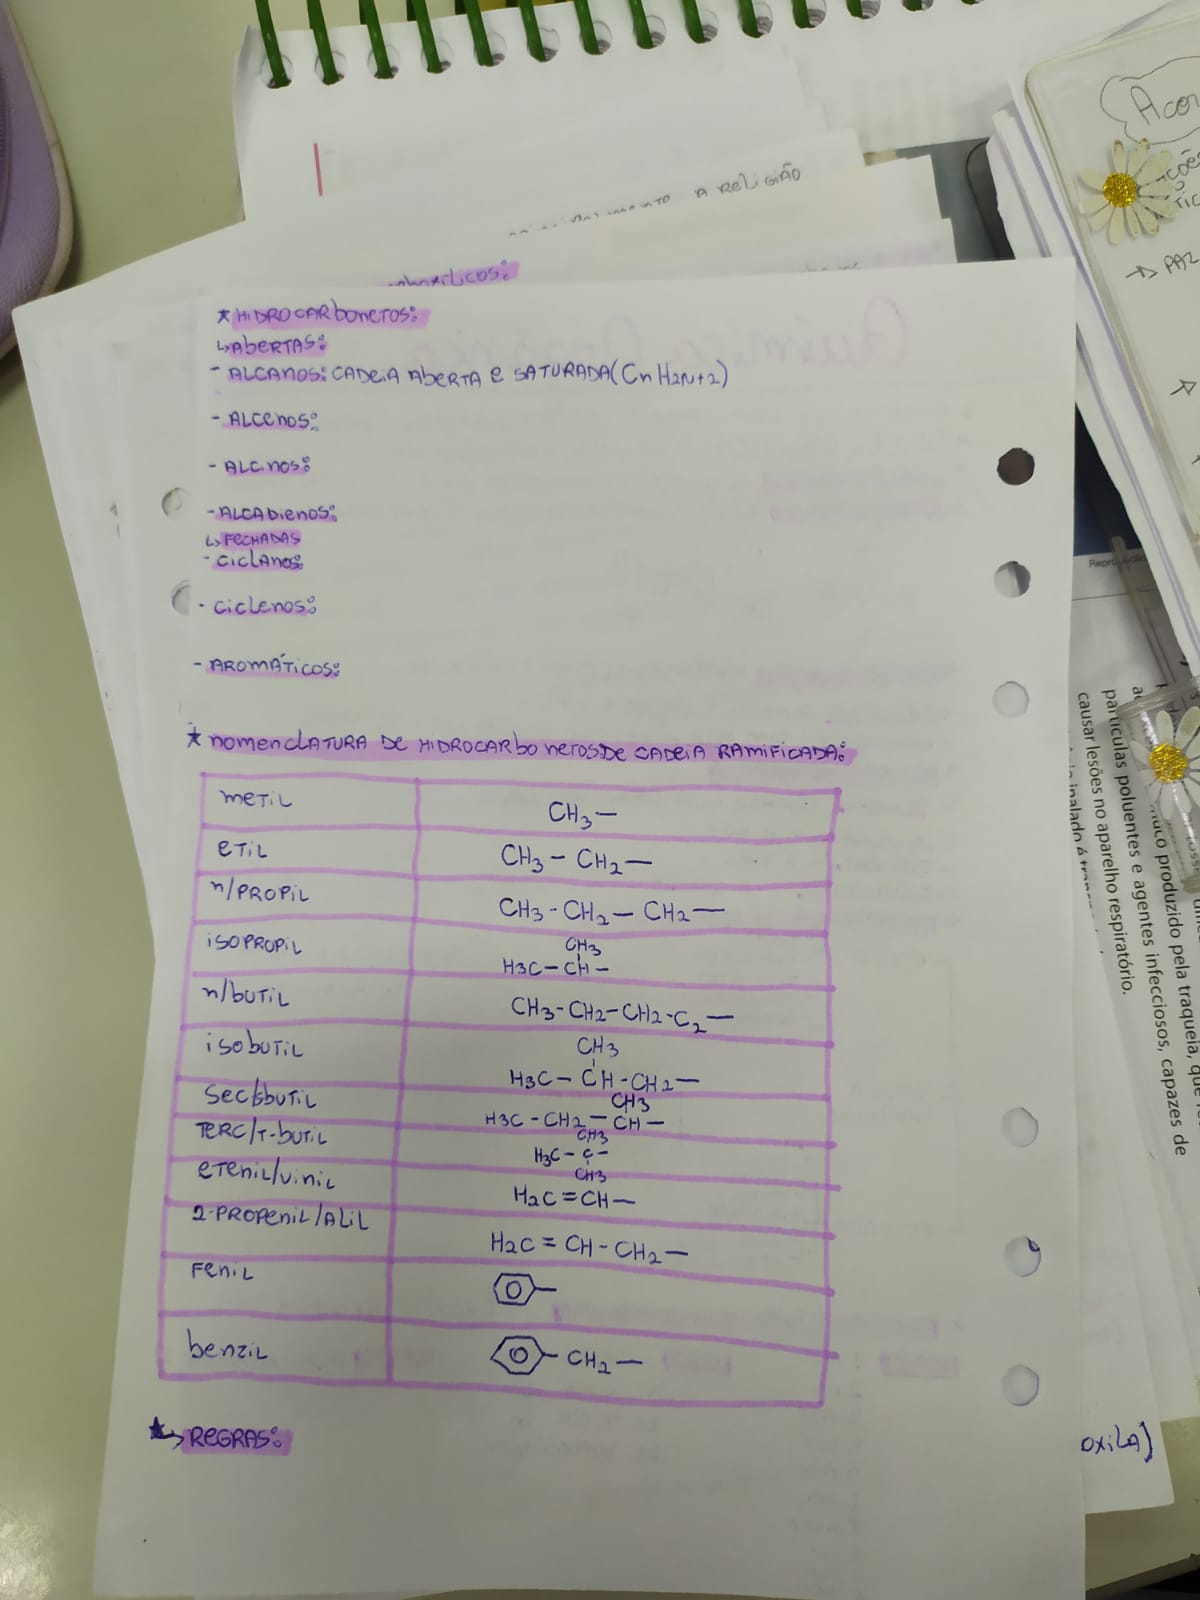 A ReLIGIÃO
★ HIDROCARBONETOS:
↳ABERTAS:
- ALCANOS: CADEIA ABERTA E SATURADA(CnH2N+2)
- ALCENOS:
- ALCINOS:
- ALCADIENOS:
↳ FECHADAS
- CICLANOS:
- CICLENOS:
- AROMÁTICOS:
★ NOMENCLATURA DE HIDROCARBONETOS DE CADEIA RAMIFICADA:
METIL CH3—
ETIL CH3 — CH2—
n/PROPIL CH3 - CH2 — CH2—
ISOPROPIL CH3
H3C — CH —
n/BUTIL CH3-CH2-CH2-C2—
ISOBUTIL CH3
H3C — CH -CH2—
SEC/SBUTIL CH3
H3C - CH2 — CH —
TERC/T-BUTIL CH3
H3C - C -
CH3
ETENIL/VINIL H2C = CH—
2-PROPENIL/ALIL H2C = CH - CH2—
FENIL
BENZIL CH2—
★↳ REGRAS:
Acor
→ PAZ
partículas poluentes e agentes infecciosos, capazes de
causar lesões no aparelho respiratório.
oxiLA)